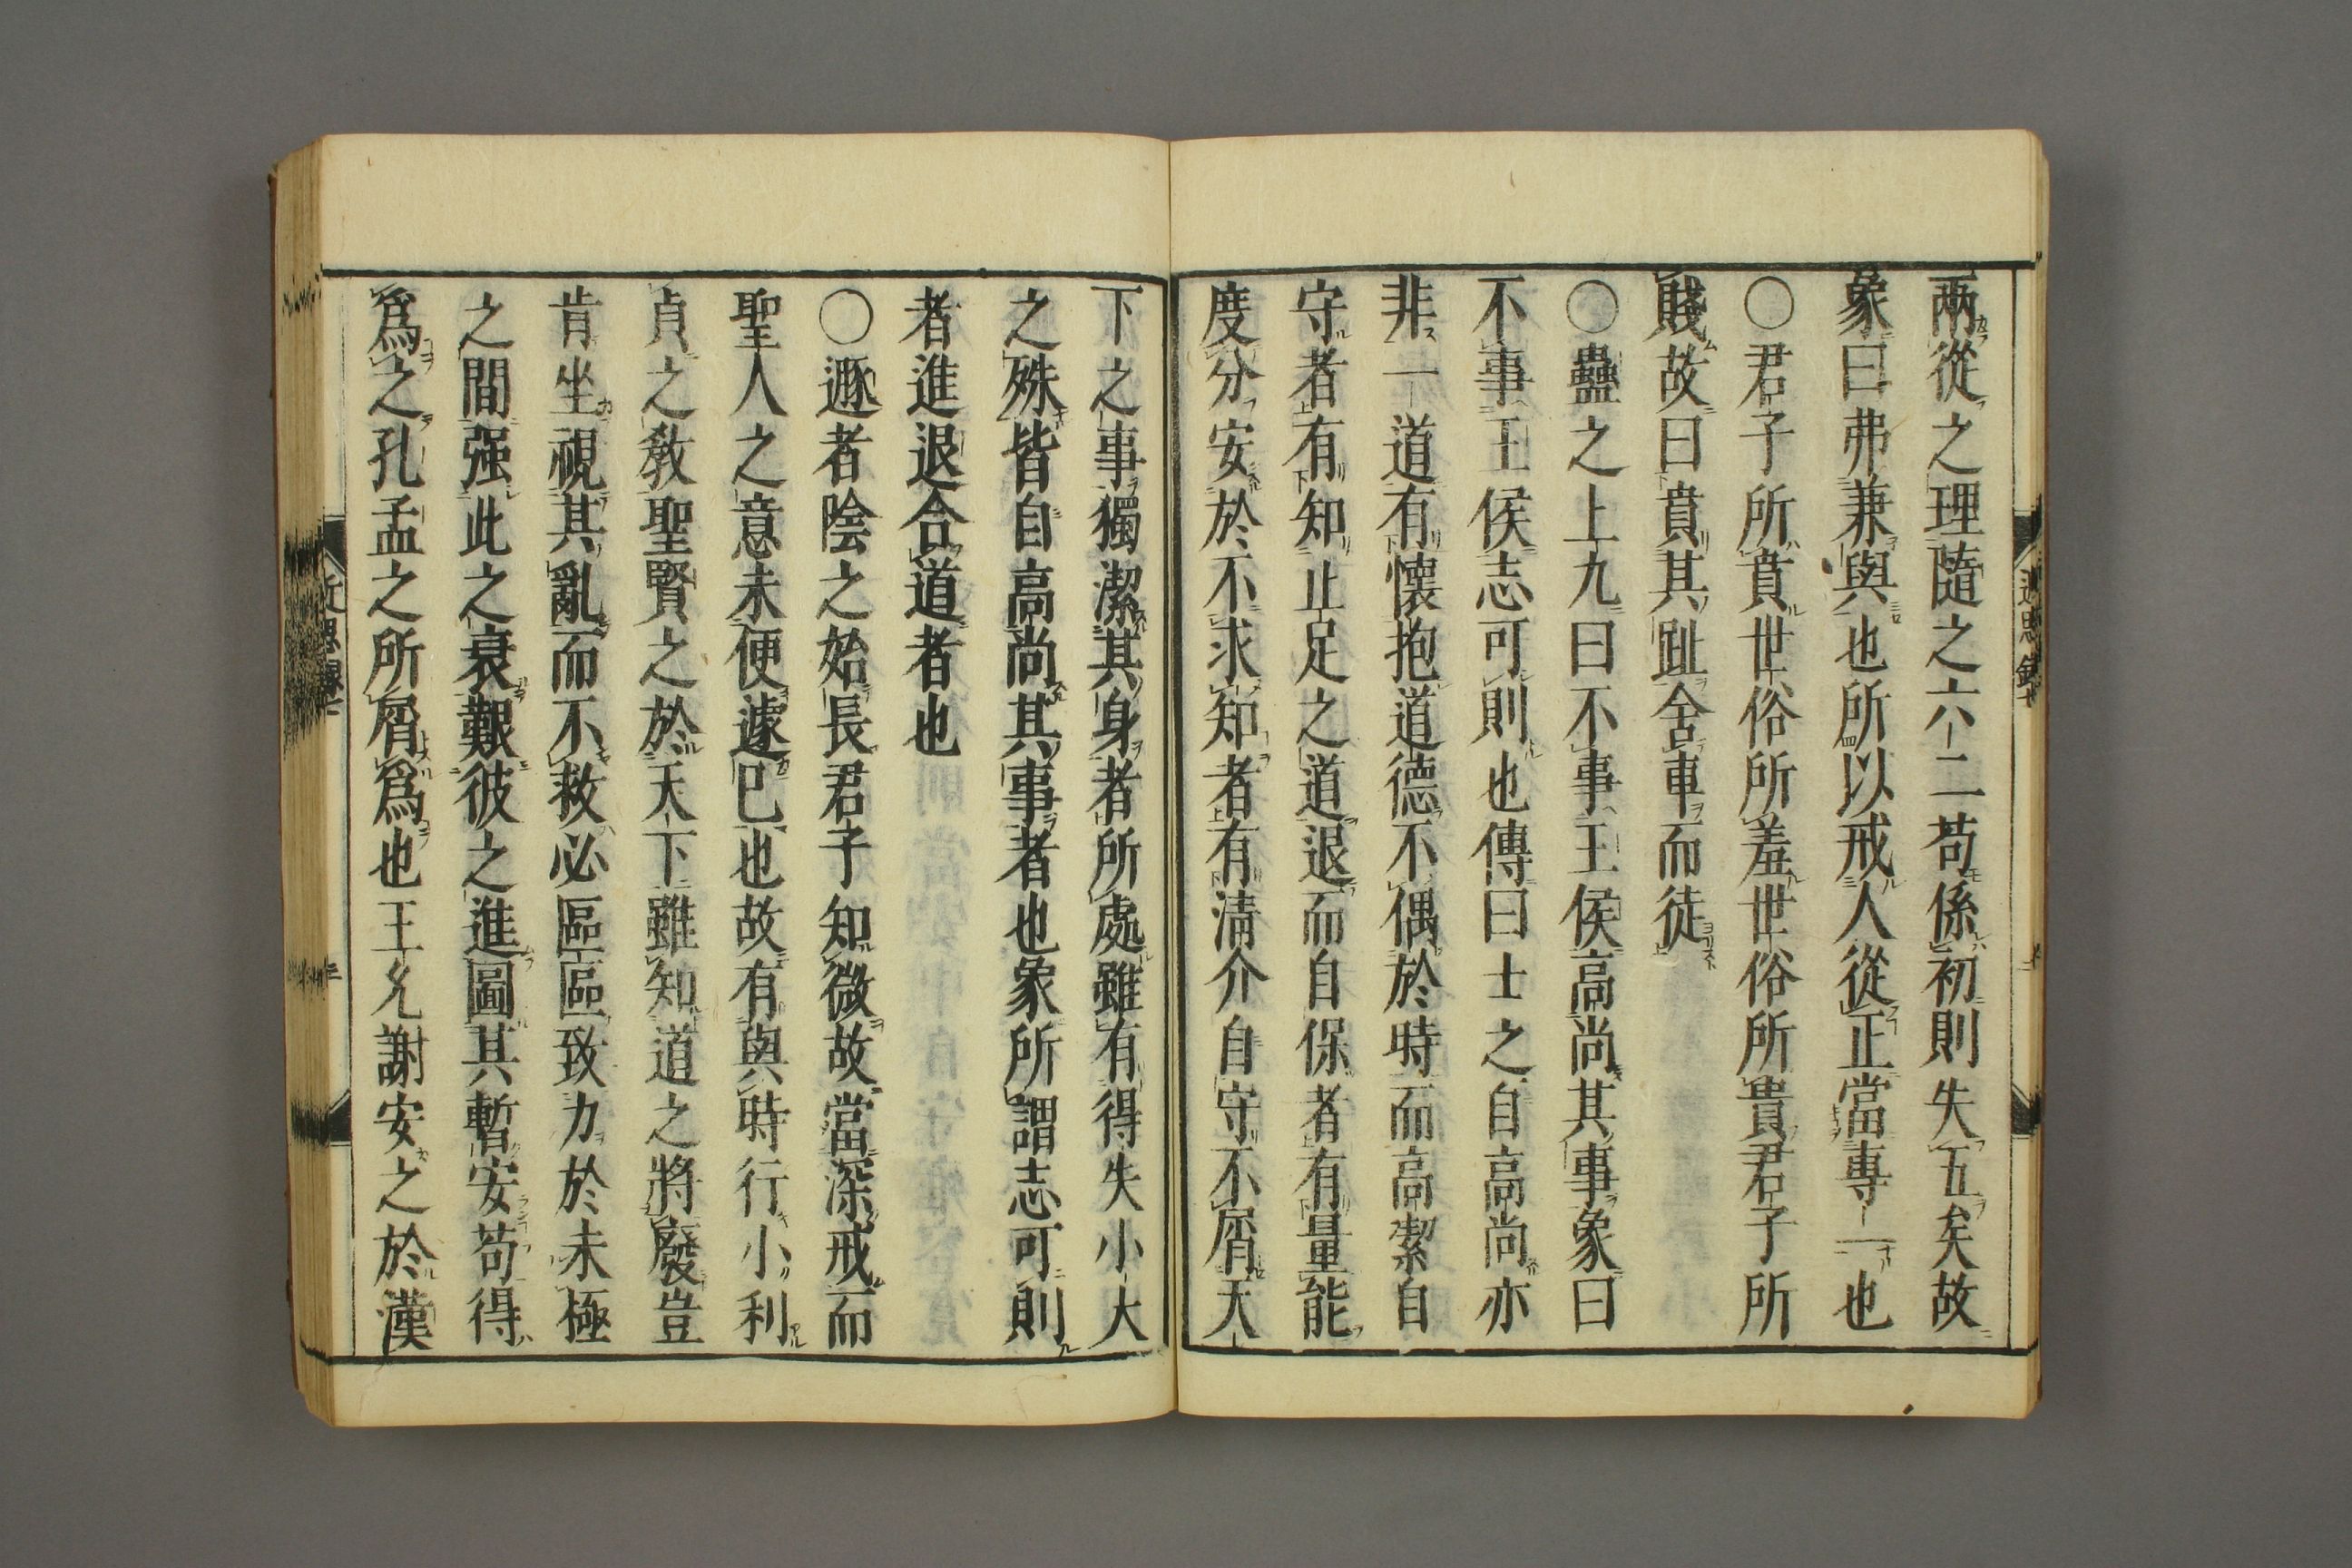 兩從之理隨之六二苟係初則失五矣故
象曰弗兼與也所以戒人從正當專一也
○君子所賁世俗所羞世俗所貴君子所
賤故曰賁其趾舍車而徒
○蠱之上九曰不事王侯高尚其事象曰
不事王侯志可則也傳曰士之自高尚亦
非一道有懷抱道德不偶於時而高潔自
守者有知止足之道退而自保者有量能
度分安於不求知者有清介自守不屑天
下之事獨潔其身者所處雖有得失小大
之殊皆自高尚其事者也象所謂志可則
者進退合道者也
○遯者陰之始長君子知微故當深戒而
聖人之意未便遽已也故有與時行小利
貞之教聖賢之於天下雖知道之將廢豈
肯坐視其亂而不救必區區致力於未極
之間强此之衰艱彼之進圖其暫安苟得
爲之孔孟之所屑爲也王允謝安之於漢
近思錄